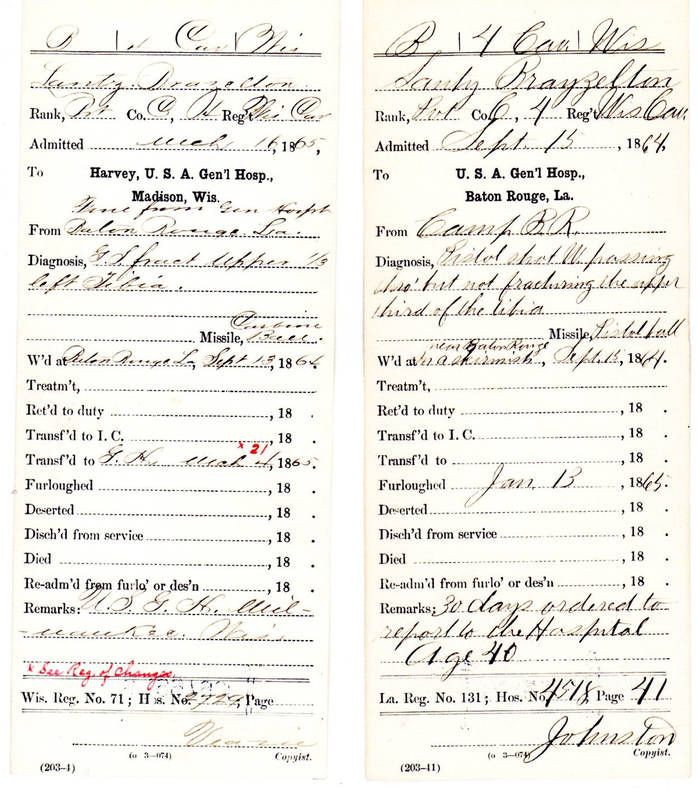 B | 4 Cav | Wis
Lanty Brazelton
Rank, Pvt Co. C, 4 Reg't Wis Cav
Admitted Mch 16, 1865,
To Harvey, U. S. A. Gen'l Hosp.,
Madison, Wis.
from Gen Hospt
From Baton Rouge La.
Diagnosis, G. S. fract upper 1/3
left Tibia.
Carbine
Missile, Ball
W'd at Baton Rouge La, Sept 13, 1864.
Treatm't,
Ret'd to duty , 18 .
Transf'd to I. C. , 18 .
x 21
Transf'd to G. H. Mch 1865.
Furloughed , 18 .
Deserted , 18 .
Disch'd from service , 18 .
Died , 18 .
Re-adm'd from furlo' or des'n , 18 .
Remarks: U. S. G. H. Mil-
waukee. Wis
x See Reg. of Changes.
Wis. Reg. No. 71; Hos. No. , Page
(o 3—074) Copyist.
(203-1)
B | 4 Cav | Wis
Lanty Brayzelton
Rank, Pvt Co. C, 4 Reg't Wis Cav.
Admitted Sept. 15, 1864.
To U. S. A. Gen'l Hosp.,
Baton Rouge, La.
From Camp B.R.
Diagnosis, Pistol shot W. passing
thro' but not fracturing the upper
third of the tibia
Missile, Pistol ball
near Baton Rouge
W'd at In a skirmish, Sept. 15, 1864.
Treatm't,
Ret'd to duty , 18 .
Transf'd to I. C. , 18 .
Transf'd to , 18 .
Furloughed Jan. 13, 1865.
Deserted , 18 .
Disch'd from service , 18 .
Died , 18 .
Re-adm'd from furlo' or des'n , 18 .
Remarks: 30 days ordered to
report to the Hospital
Age 40
La. Reg. No. 131; Hos. No. 4518, Page 41
Johnston
(o 3—074) Copyist.
(203-11)